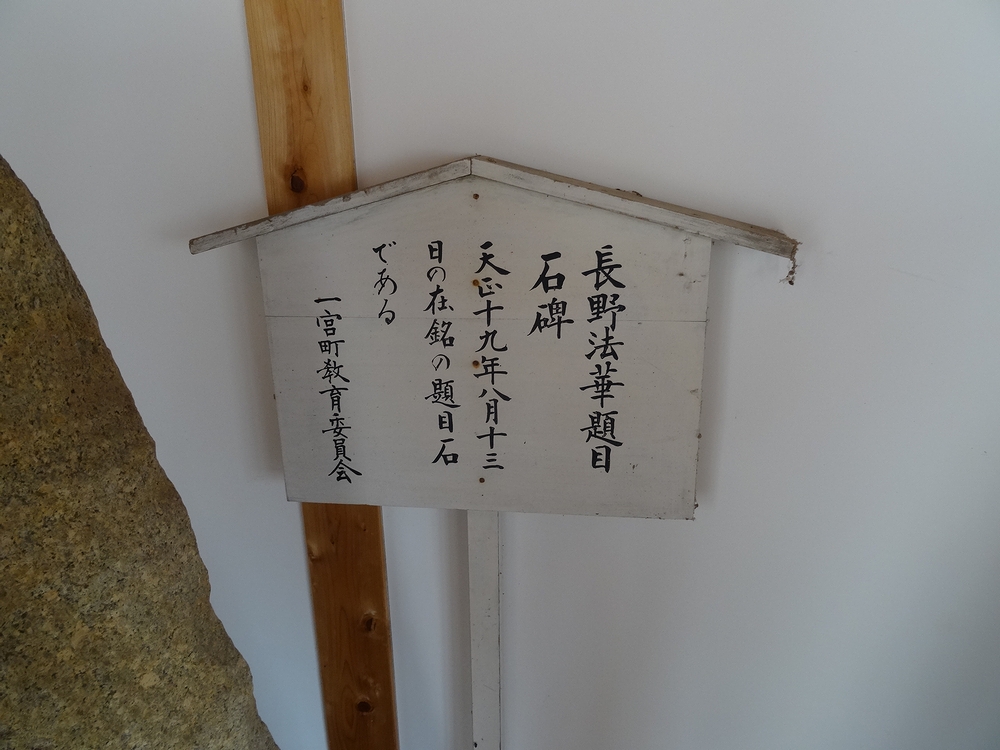 長野法華題目
石碑
天正十九年八月十三
日の在銘の題目石
である
一宮町教育委員会